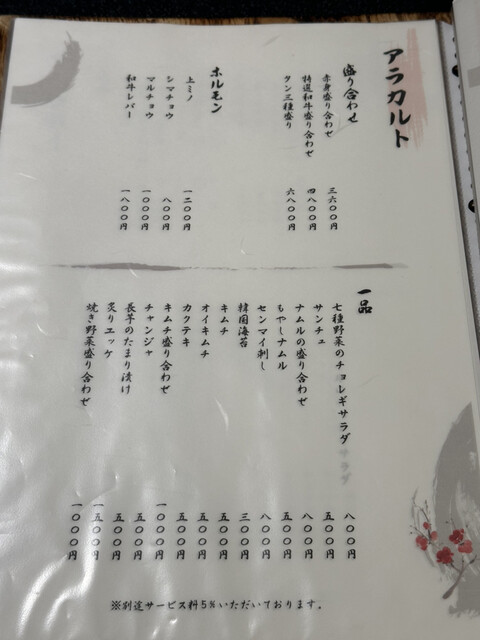 アラカルト
盛り合わせ
赤身盛り合わせ 三六〇〇円
特選和牛盛り合わせ 四八〇〇円
タン三種盛り 六八〇〇円
ホルモン
上ミノ 一二〇〇円
シマチョウ 八〇〇円
マルチョウ 一〇〇〇円
和牛レバー 一八〇〇円
一品
七種野菜のチョレギサラダ サラダ 八〇〇円
サンチュ 五〇〇円
ナムルの盛り合わせ 八〇〇円
もやしナムル 五〇〇円
センマイ刺し 八〇〇円
韓国海苔 三〇〇円
キムチ 五〇〇円
オイキムチ 五〇〇円
カクテキ 五〇〇円
キムチ盛り合わせ 一〇〇〇円
チャンジャ 五〇〇円
長芋のたまり漬け 五〇〇円
炙りエッケ 一五〇〇円
焼き野菜盛り合わせ 一〇〇〇円
※別途サービス料5%いただいております。